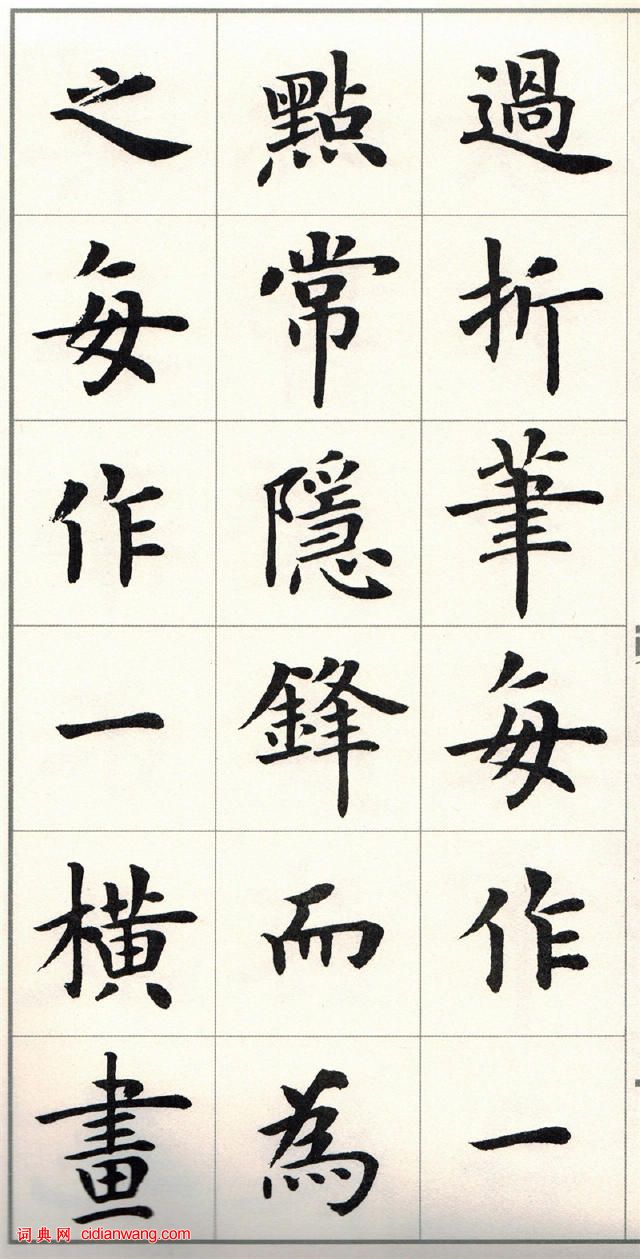 過折筆每作一
點常隱鋒而為
之每作一橫畫
词典网 cidianwang.com